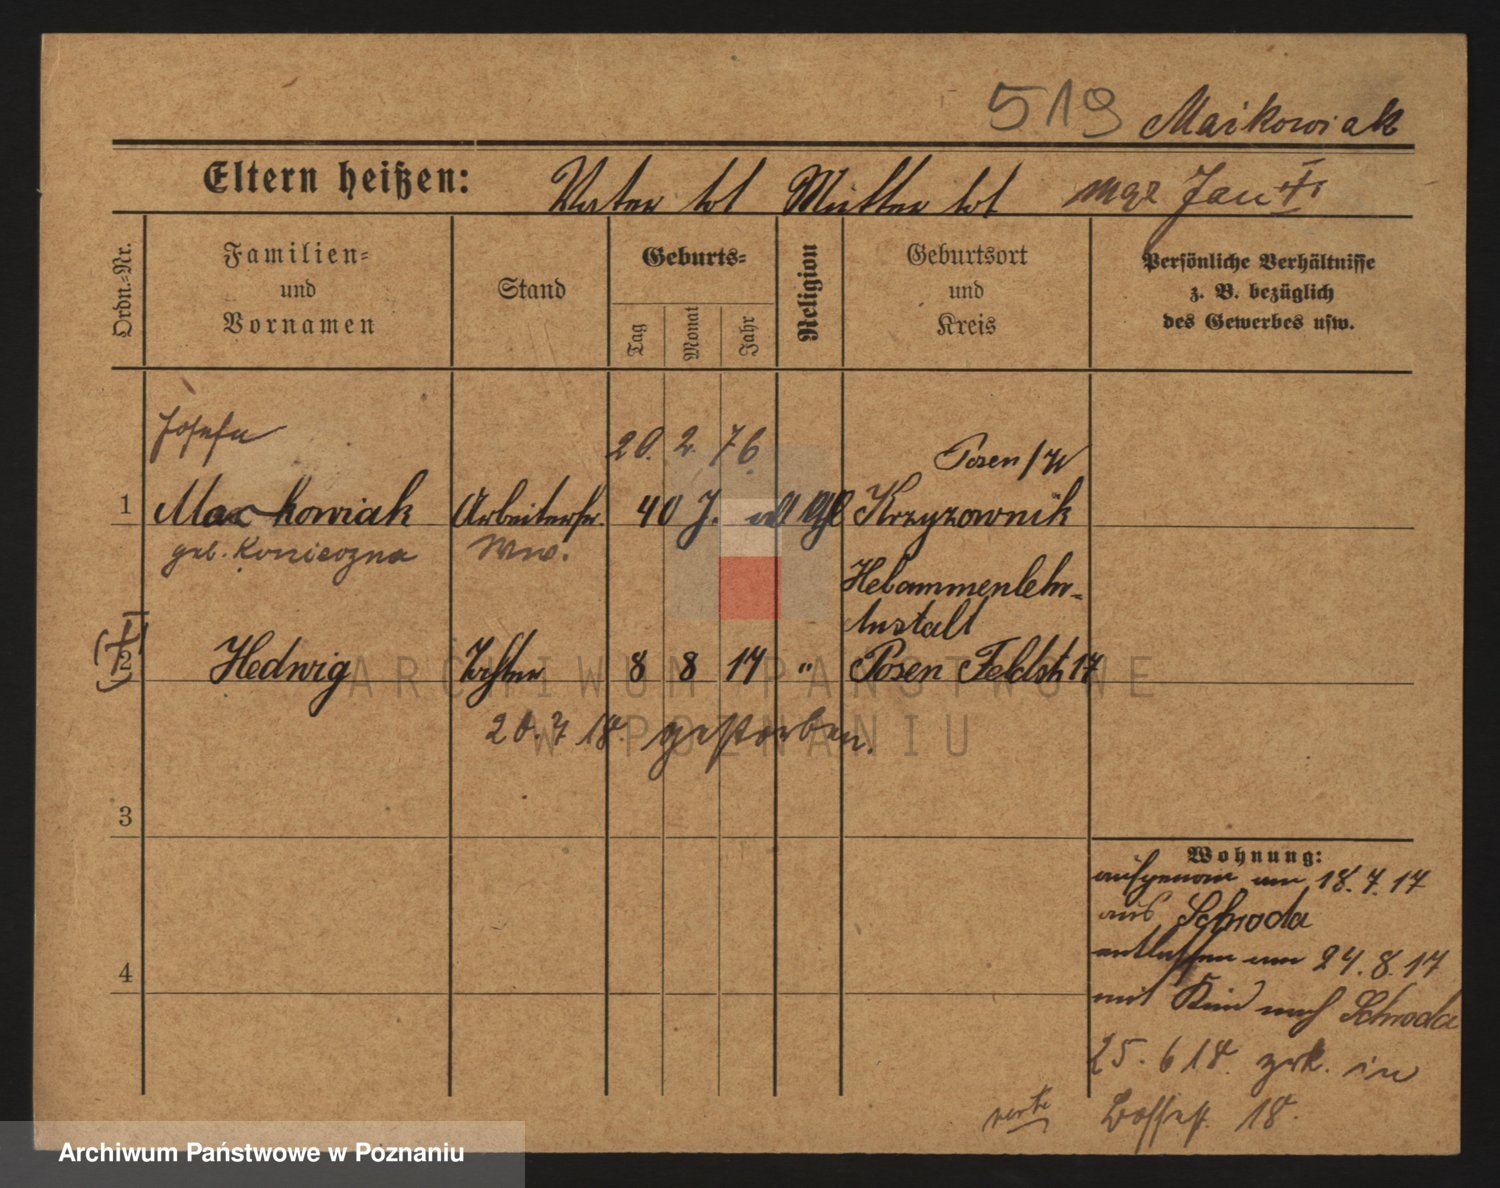 519 Maikowiak
Eltern heißen: Vater tot Mutter tot
Ordn.-Nr.
Familien-
und
Vornamen
Stand
Geburts-
Tag
Monat
Jahr
Religion
Geburtsort
und
Kreis
Persönliche Verhältnisse
z. B. bezüglich
des Gewerbes usw.
Josefa 20. 2. 76. Posen/W
1 Maćkowiak Arbeiterfr. 40 J. Krzyzownik
geb. Konieczna Ww.
Hebammenlehr-
Anstalt
2 Hedwig Tochter 8 8 17 " Posen Feldstr 17
20. 7 18. gestorben.
3
4
Wohnung:
aufgenom am 18. 7. 17
aus Schroda
entlassen am 24. 8. 17
mit Kind nach Schroda
25. 6 18. zrk. in
18.
ARCHIWUM PAŃSTWOWE
W POZNANIU
Archiwum Państwowe w Poznaniu